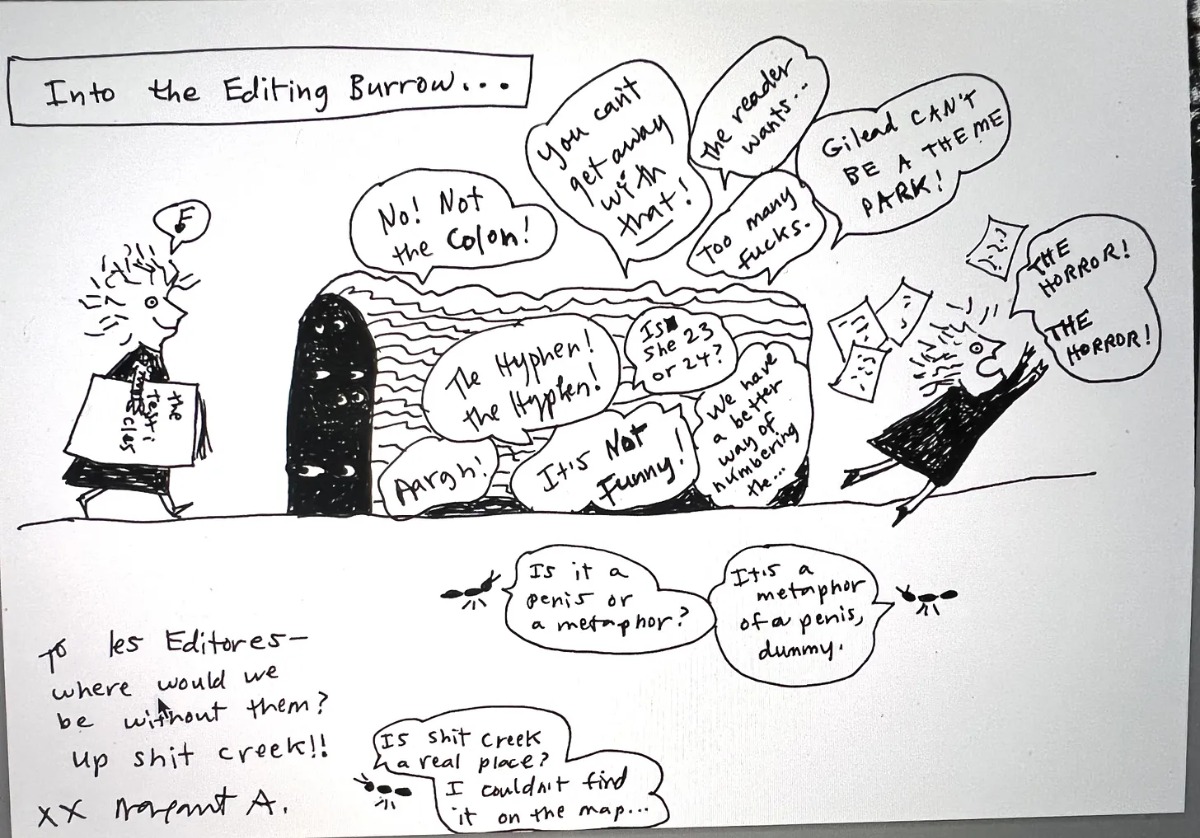 Into the Editing Burrow...
No! Not
the Colon!
You can't
get away
with
that!
The reader
wants...
Gilead CAN'T
BE A THEME
PARK!
Too many
fucks.
the
Testi
cles
The Hyphen!
the Hyphen!
Is
she 23
or 24?
We have
a better
way of
numbering
the...
Aargh!
It's Not
Funny!
THE
HORROR!
THE
HORROR!
Is it a
penis or
a metaphor?
It's a
metaphor
of a penis,
dummy.
To les Editores—
where would we
be without them?
Up shit creek!!
xx Margaret A.
Is shit creek
a real place?
I couldn't find
it on the map...